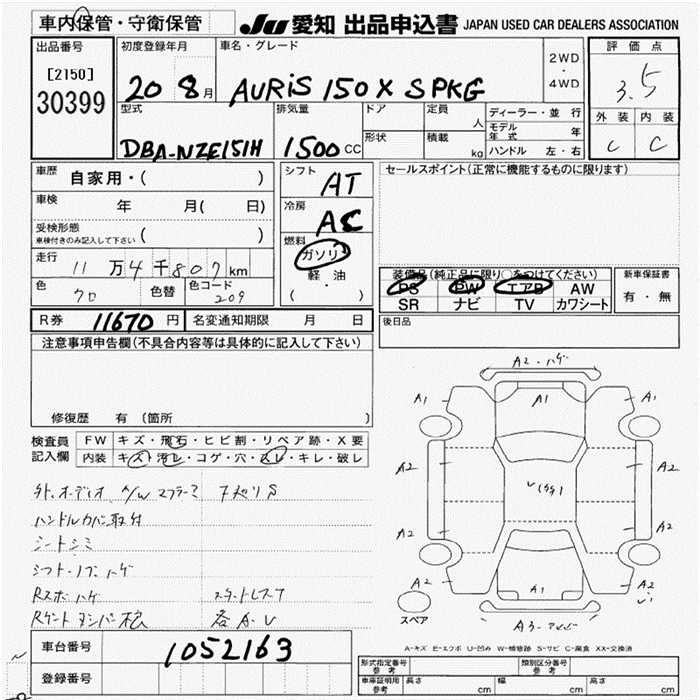 車内保管・守衛保管
JU 愛知 出品申込書 JAPAN USED CAR DEALERS ASSOCIATION
出品番号
[2150]
30399
初度登録年月
20 8月
車名・グレード
AURiS 150X S PKG
2WD
・
4WD
評価点
3.5
外装 内装
C C
型式
DBA-NZE151H
排気量
1500 CC
ドア
形状
定員 人
積載 kg
ディーラー・並行
モデル年式 年
ハンドル 左・右
車歴 自家用・( )
車検 年 月( 日)
受検形態
車検付きのみ記入して下さい ( )
走行 11万4千807km
色 クロ 色替 色コード 209
シフト AT
冷房 AC
燃料
ガソリン
軽油
( ・ )
セールスポイント(正常に機能するものに限ります)
装備品(純正品に限り○をつけてください)
PS PW エアB AW
SR ナビ TV カワシート
新車保証書
有・無
R券 11670円 名変通知期限 月 日
後日品
注意事項申告欄(不具合内容等は具体的に記入して下さい)
修復歴 有 (箇所
検査員記入欄
FW キズ・飛石・ヒビ割・リペア跡・X要
内装 キズ・汚レ・コゲ・穴・スレ・キレ・破レ
外.オーディオ A/W マフラー
ハンドルカバー取付
シートシミ
シフトノブハゲ
各A.U
A2・ハゲ
A1 A1 A1
A2 A2
A2 A2
A2 A2
A1
スペア
A-キズ E-エクボ U-凹み W-補修跡 S-サビ C-腐食 XX-交換済
車台番号 1052163
登録番号
形式指定番号 参考
類別区分番号 参考
車庫証明用 参考 長さ cm 幅 cm 高さ cm